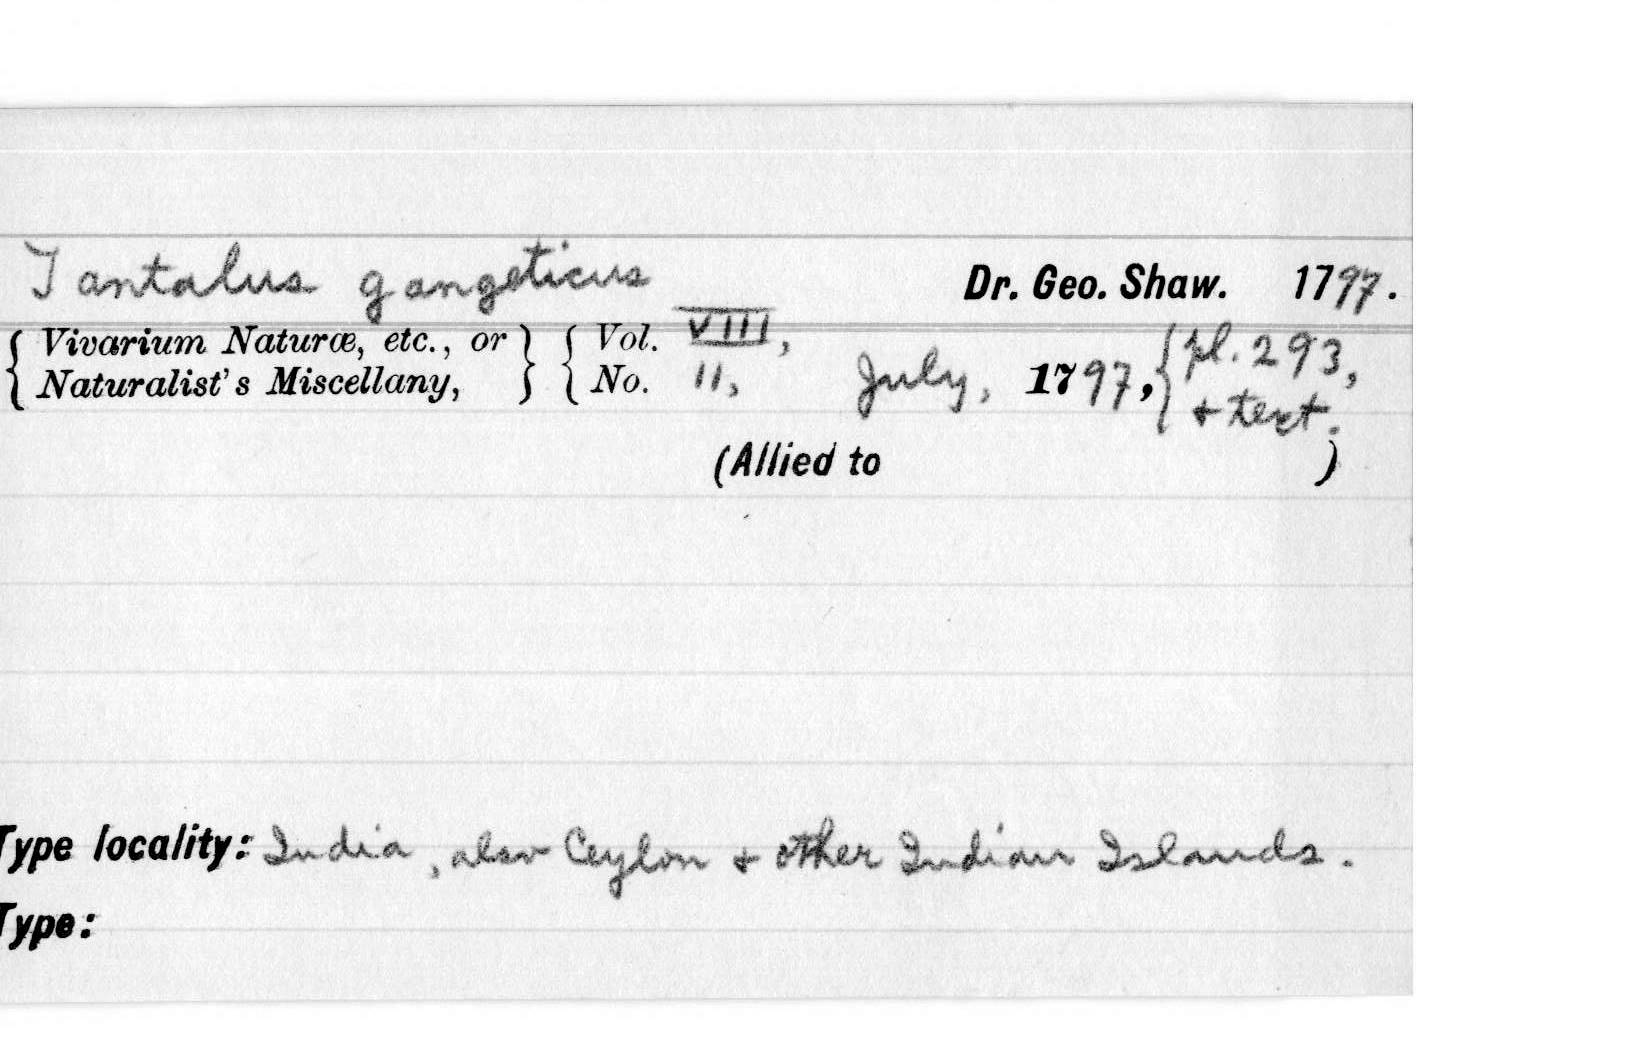 Tantalus gangeticus Dr. Geo. Shaw. 1797.
{ Vivarium Naturæ, etc., or } { Vol. VIII, { pl. 293,
{ Naturalist's Miscellany, } { No. 11, July, 1797, { + text.
(Allied to )
Type locality: India, also Ceylon + other Indian Islands.
Type: